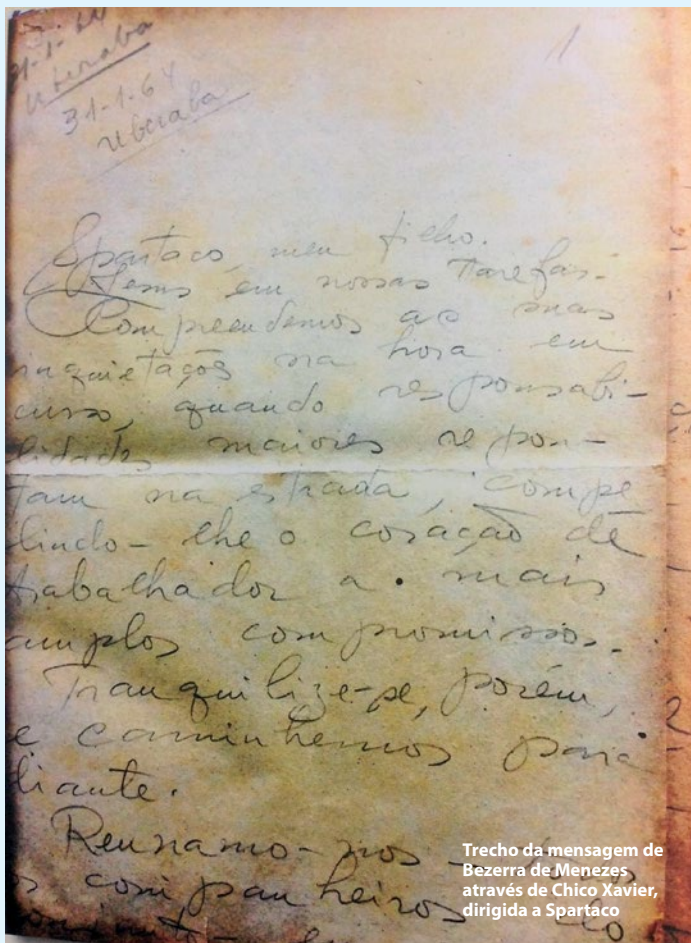 31-1-64
Uberaba
31-1-64
Uberaba
1
Spartaco, meu filho.
Jesus em nossas tarefas.
Compreendemos as suas
inquietações na hora em
curso, quando responsabi-
lidades maiores repon-
tam na estrada, compe
lindo-lhe o coração de
trabalhador a mais
amplos compromissos.
Tranquilize-se, porém,
e caminhemos para
diante.
Reunamo-nos
os companheiros do
Trecho da mensagem de
Bezerra de Menezes
através de Chico Xavier,
dirigida a Spartaco